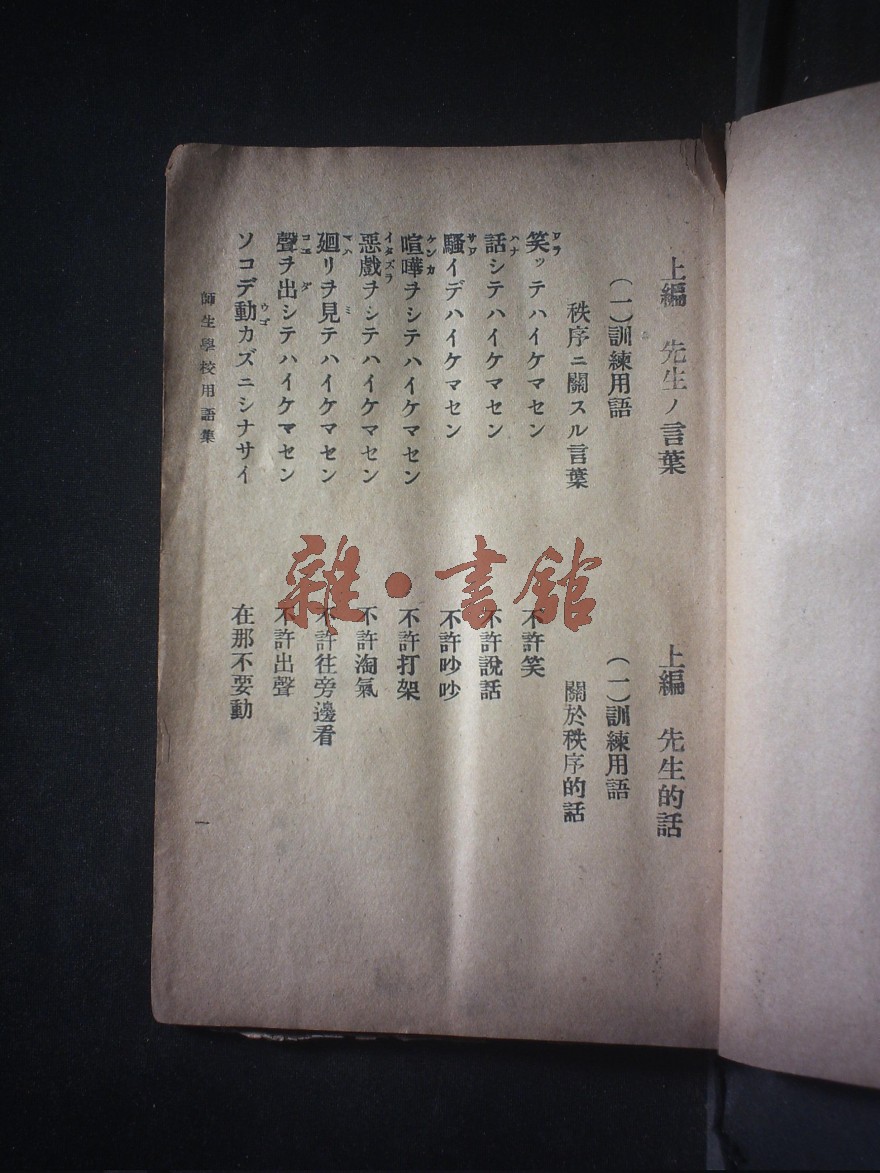 上編　先生ノ言葉
（一）訓練用語
秩序ニ關スル言葉
笑ッテハイケマセン
ワラ
話シテハイケマセン
ハナ
騷イデハイケマセン
サワ
喧嘩ヲシテハイケマセン
ケンカ
惡戲ヲシテハイケマセン
イタズラ
廻リヲ見テハイケマセン
マハ　ミ
聲ヲ出シテハイケマセン
コエ　ダ
ソコデ動カズニシナサイ
ウゴ
上編　先生的話
（一）訓練用語
關於秩序的話
不許笑
不許說話
不許吵吵
不許打架
不許淘氣
不許往旁邊看
不許出聲
在那不要動
師生學校用語集
一
雜·書館